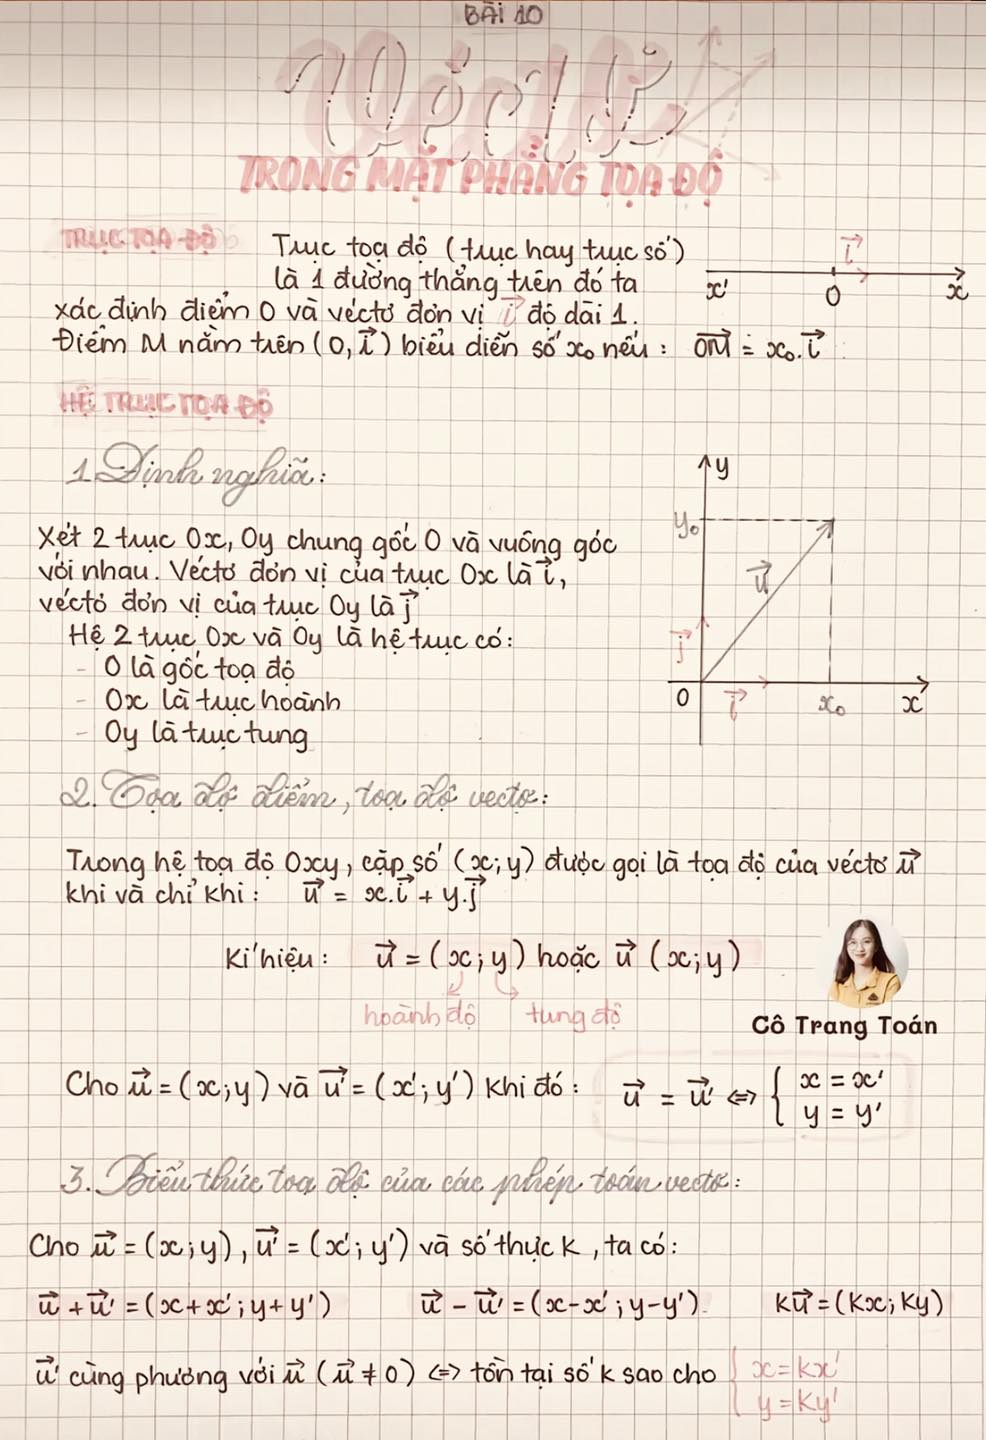 BÀI 10
Véctơ
TRONG MẶT PHẲNG TỌA ĐỘ
TRỤC TỌA ĐỘ
Trục toạ độ (trục hay trục số)
là 1 đường thẳng trên đó ta
xác định điểm O và véctơ đơn vị i⃗ độ dài 1.
Điểm M nằm trên (O, i⃗) biểu diễn số x₀ nếu: OM⃗ = x₀.i⃗
i⃗
x' O x
HỆ TRỤC TỌA ĐỘ
1. Định nghĩa:
Xét 2 trục Ox, Oy chung gốc O và vuông góc
với nhau. Véctơ đơn vị của trục Ox là i⃗,
véctơ đơn vị của trục Oy là j⃗
Hệ 2 trục Ox và Oy là hệ trục có:
- O là gốc toạ độ
- Ox là trục hoành
- Oy là trục tung
y
y₀
u⃗
j⃗
O i⃗ x₀ x
2. Tọa độ điểm, toạ độ vectơ:
Trong hệ toạ độ Oxy, cặp số (x; y) được gọi là tọa độ của véctơ u⃗
khi và chỉ khi: u⃗ = x.i⃗ + y.j⃗
Kí hiệu: u⃗ = (x; y) hoặc u⃗ (x; y)
hoành độ tung độ
Cô Trang Toán
Cho u⃗ = (x; y) và u⃗' = (x'; y') khi đó: u⃗ = u⃗' ⇔ { x = x'
y = y'
3. Biểu thức toạ độ của các phép toán vectơ:
Cho u⃗ = (x; y), u⃗' = (x'; y') và số thực k, ta có:
u⃗ + u⃗' = (x+x'; y+y') u⃗ - u⃗' = (x-x'; y-y'). ku⃗ = (kx; ky)
u⃗' cùng phương với u⃗ (u⃗ ≠ 0) ⇔ tồn tại số k sao cho { x = kx'
y = ky'